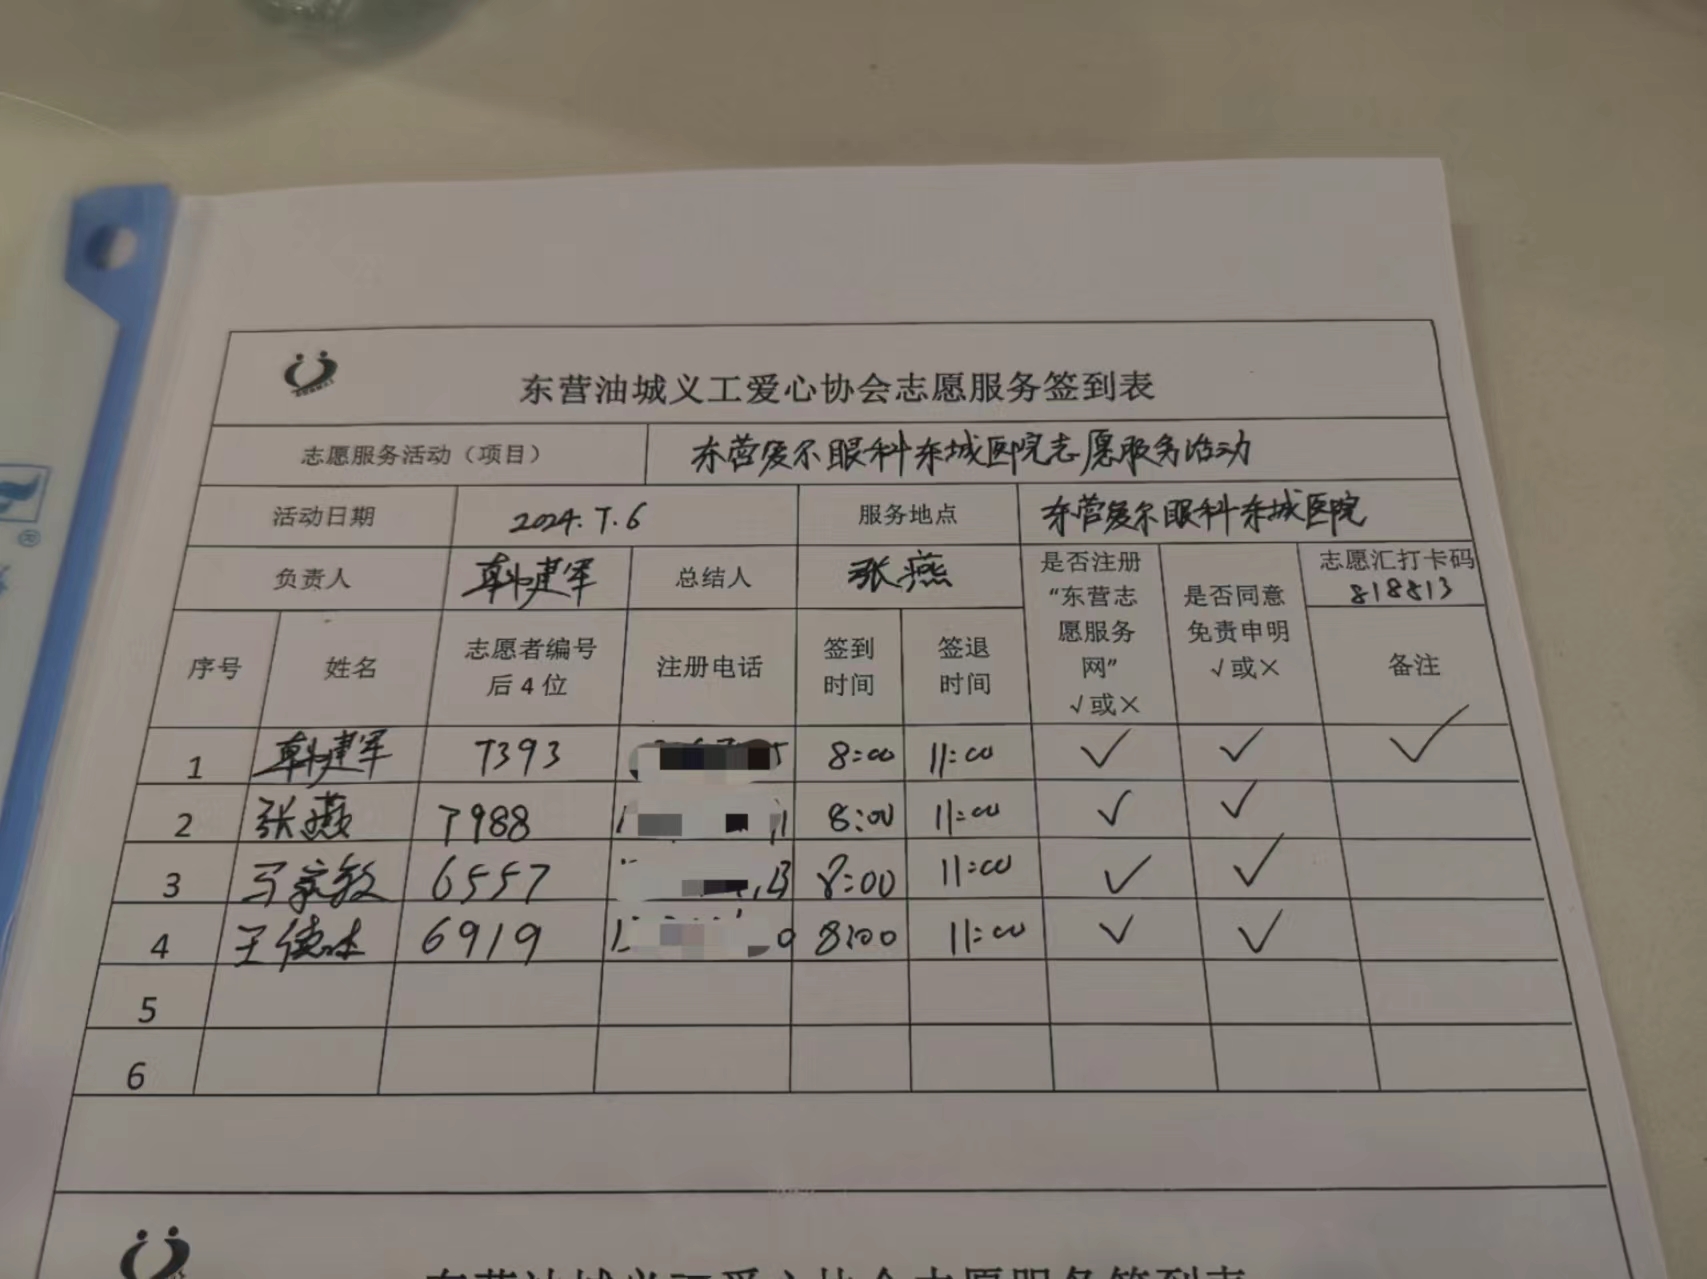 东营油城义工爱心协会志愿服务签到表
志愿服务活动（项目） 东营爱尔眼科东城医院志愿服务活动
活动日期 2024.7.6 服务地点 东营爱尔眼科东城医院
负责人 韩建军 总结人 张燕 是否注册“东营志愿服务网”√或× 是否同意免责申明√或× 志愿汇打卡码 818813
序号 姓名 志愿者编号后4位 注册电话 签到时间 签退时间 备注
1 韩建军 7393 8:00 11:00 √ √ √
2 张燕 7988 8:00 11:00 √ √
3 马家敏 6557 8:00 11:00 √ √
4 王德 6919 8:00 11:00 √ √
5
6
东营油城义工爱心协会志愿服务签到表